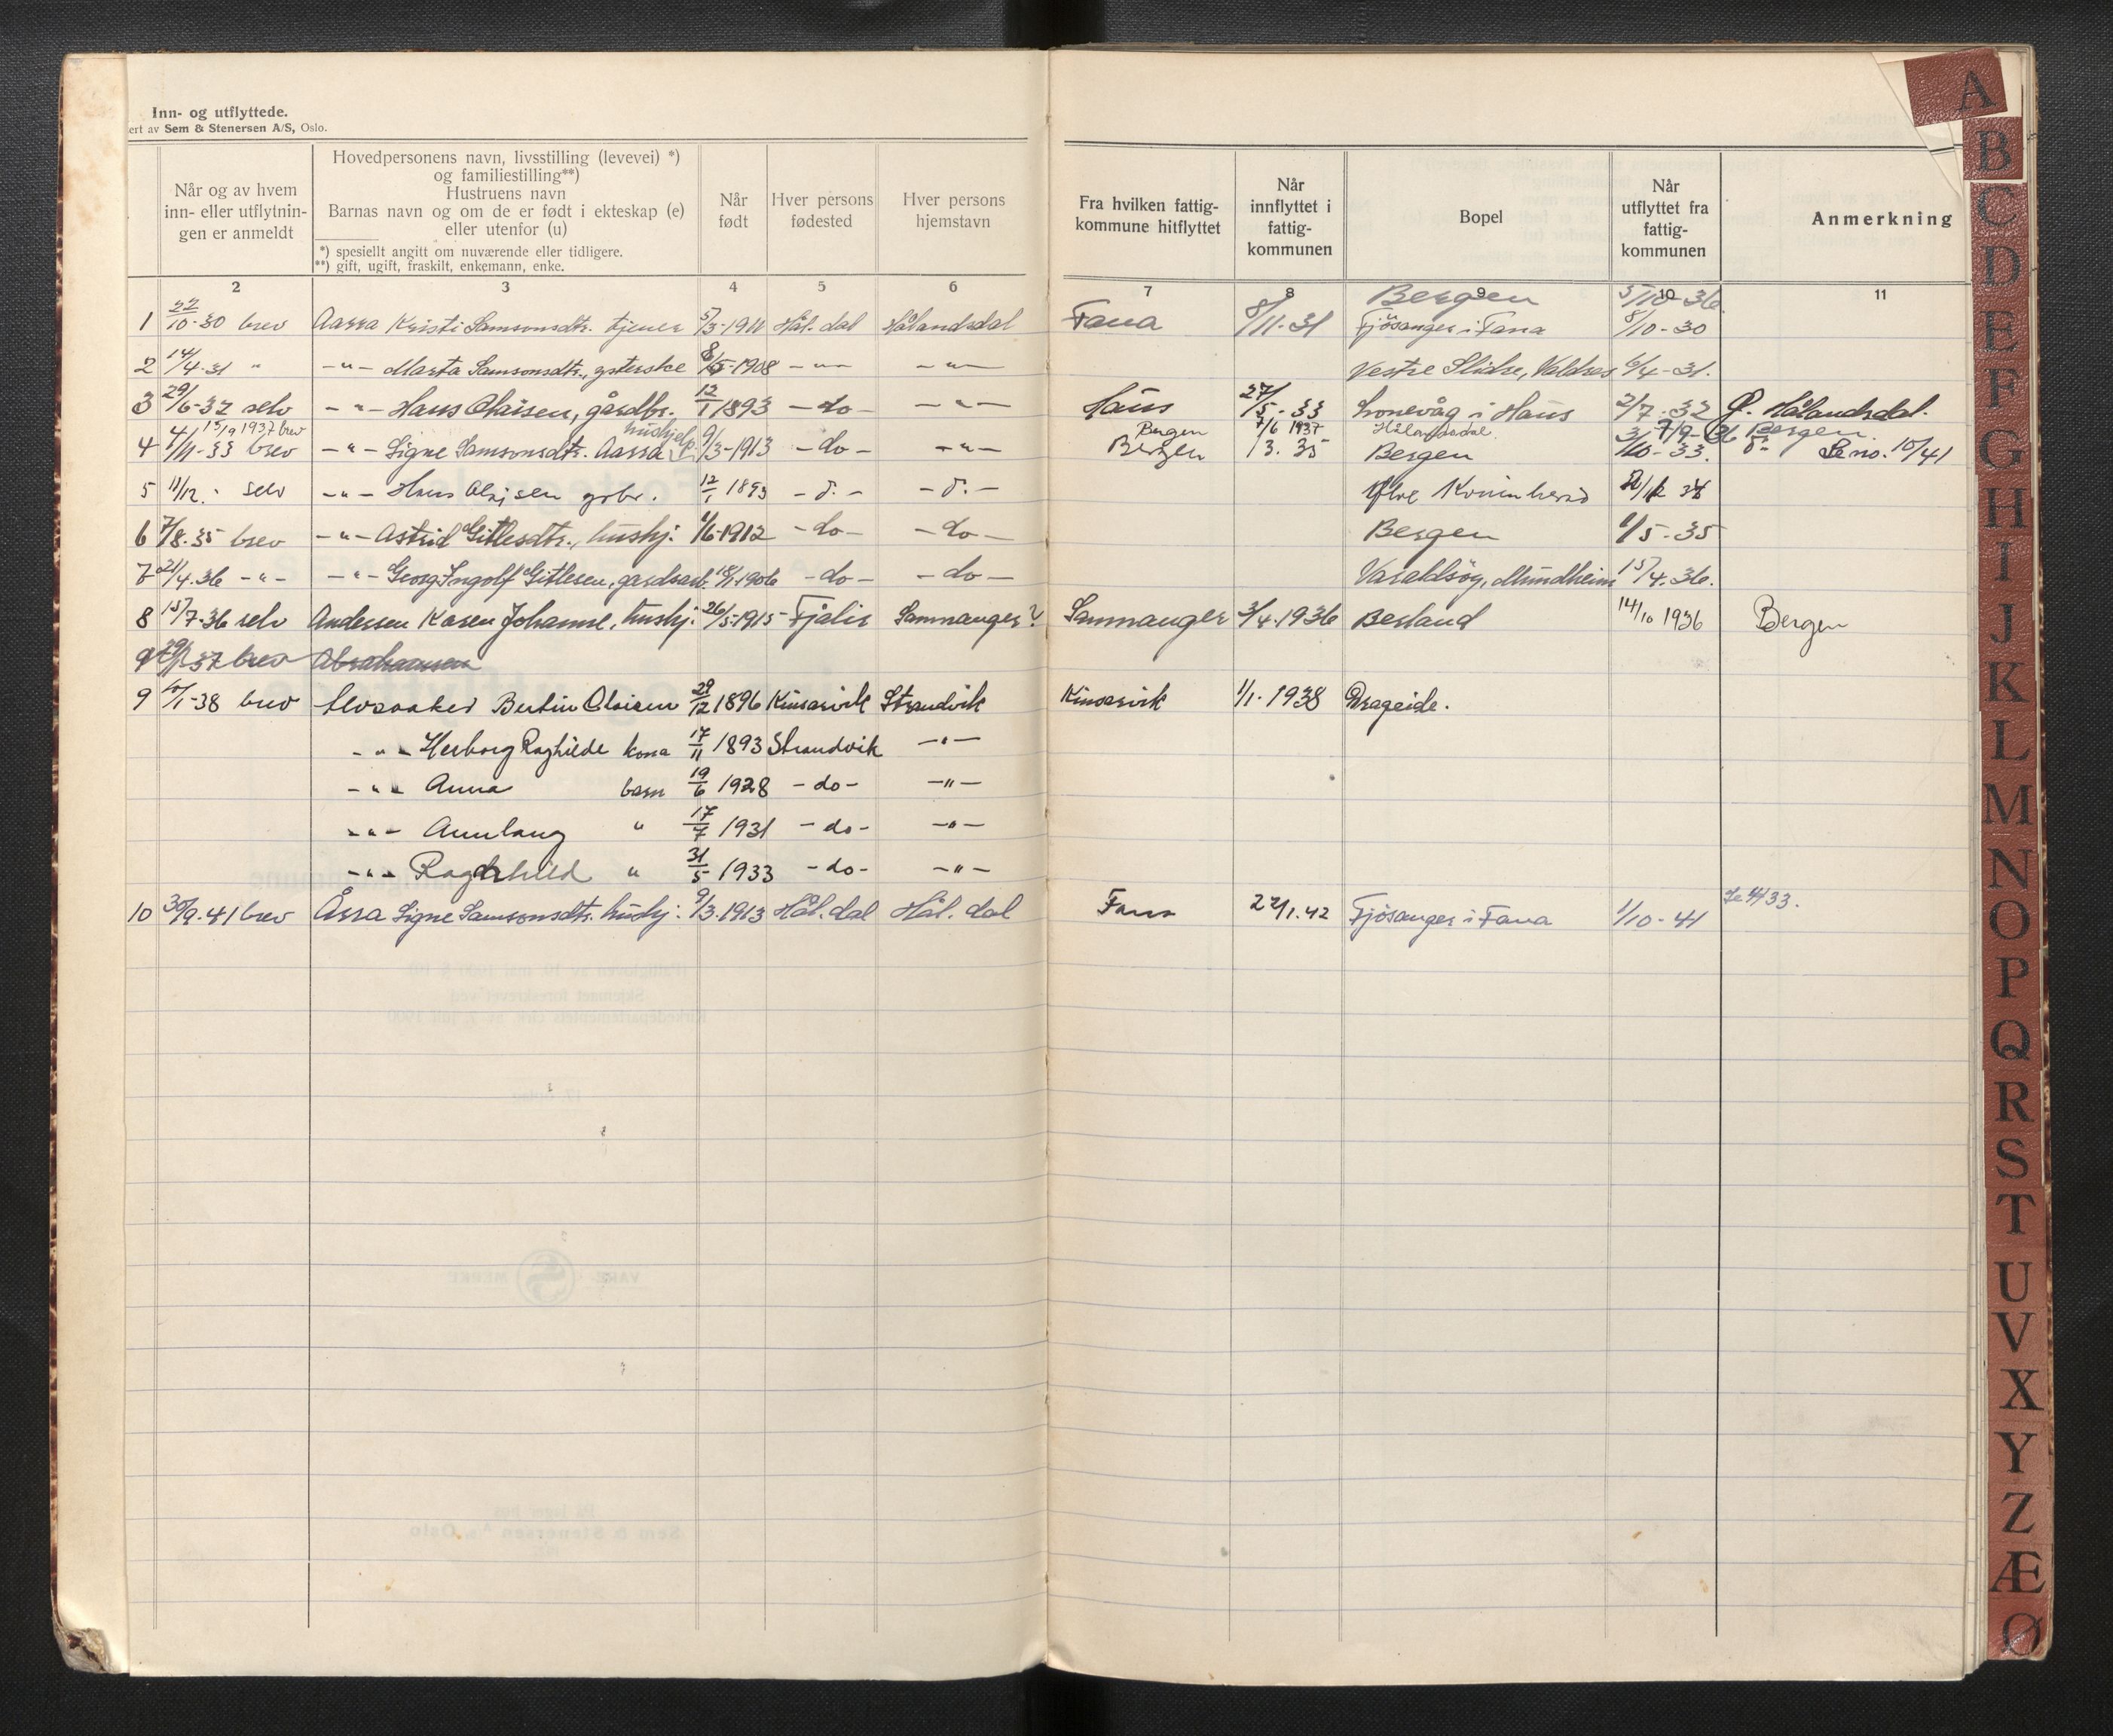 Inn- og utflyttede.
ert av Sem & Stenersen A/S, Oslo.
Når og av hvem
inn- eller utflytnin-
gen er anmeldt
Hovedpersonens navn, livsstilling (levevei) *)
og familiestilling**)
Hustruens navn
Barnas navn og om de er født i ekteskap (e)
eller utenfor (u)
*) spesiellt angitt om nuværende eller tidligere.
**) gift, ugift, fraskilt, enkemann, enke.
Når
født
Hver persons
fødested
Hver persons
hjemstavn
Fra hvilken fattig-
kommune hitflyttet
Når
innflyttet i
fattig-
kommunen
Bopel
Når
utflyttet fra
fattig-
kommunen
Anmerkning
2 3 4 5 6 7 8 9 10 11
Bergen 5/10-36
1 22/10-30 brev Aarra Kristi Samsonsdtr. tjener 5/3-1911 Hål.dal Hålandsdal Fana 8/11-31 Fjösanger i Fana 8/10-30
2 14/4-31 " -"- Marta Samsonsdtr., 8/5-1908 -"- -"- Vestre Slidre, Valdres 6/4-31.
3 29/6-32 selv -"- Hans Olaisen, gårdbr. 12/1 1893 -do- -"- Haus 27/5-33 Lonevåg i Haus 2/7-32 Hålandsdal.
15/9 1937 brev hushjelp Bergen 7/6 1937 Hålandsdal 7/9-36 Bergen.
4 4/11-33 brev -"- Signe Samsonsdtr. Aarra 9/3-1913 -do- -"- Bergen /3. 35 Bergen /10-33. Se no. 10/41
5 11/12. - selv -"- Hans Olaisen grbr. 12/1 1893 -d.- -d.- Kvinnherad
6 7/8-35 brev -"- Astrid Gitlesdtr., hushj. 1/6-1912 -do- -do- Bergen 1/5-35
7 21/4.36 -"- -"- Georg Ingolf Gitlesen, gardsarb. 18/1.1906 -do- -do- Varaldsöy, Mundheim 15/4.36.
8 15/7-36 selv Andersen Karen Johanne, hushj. 26/5-1915 Fjaler Samnanger? Samnanger 3/4.1936 Berland 14/10 1936 Bergen
9 37 brev Abrahamsen
9 10/1-38 brev Bertin Olaisen 29/12 1896 Kinsarvik Strandvik Kinsarvik 1/1. 1938 Drageide.
-"- Herborg Raghilde kona 17/11 1893 Strandvik -"-
-"- Anna barn 19/6 1928 -do- -"-
-"- Aunlaug " 17/7 1931 -do- -"-
-"- Ragnhild " 31/5 1933 -do- -"-
10 30/9.41 brev Åssa Signe Samsonsdtr. hushj. 9/3.1913 Hål.dal Hål.dal Fana 27/1.42 Fjösanger i Fana 1/10-41 Se 4/33.
A
B
C
D
E
F
G
H
I
J
K
L
M
N
O
P
Q
R
S
T
U
V
X
Y
Z
Æ
Ø